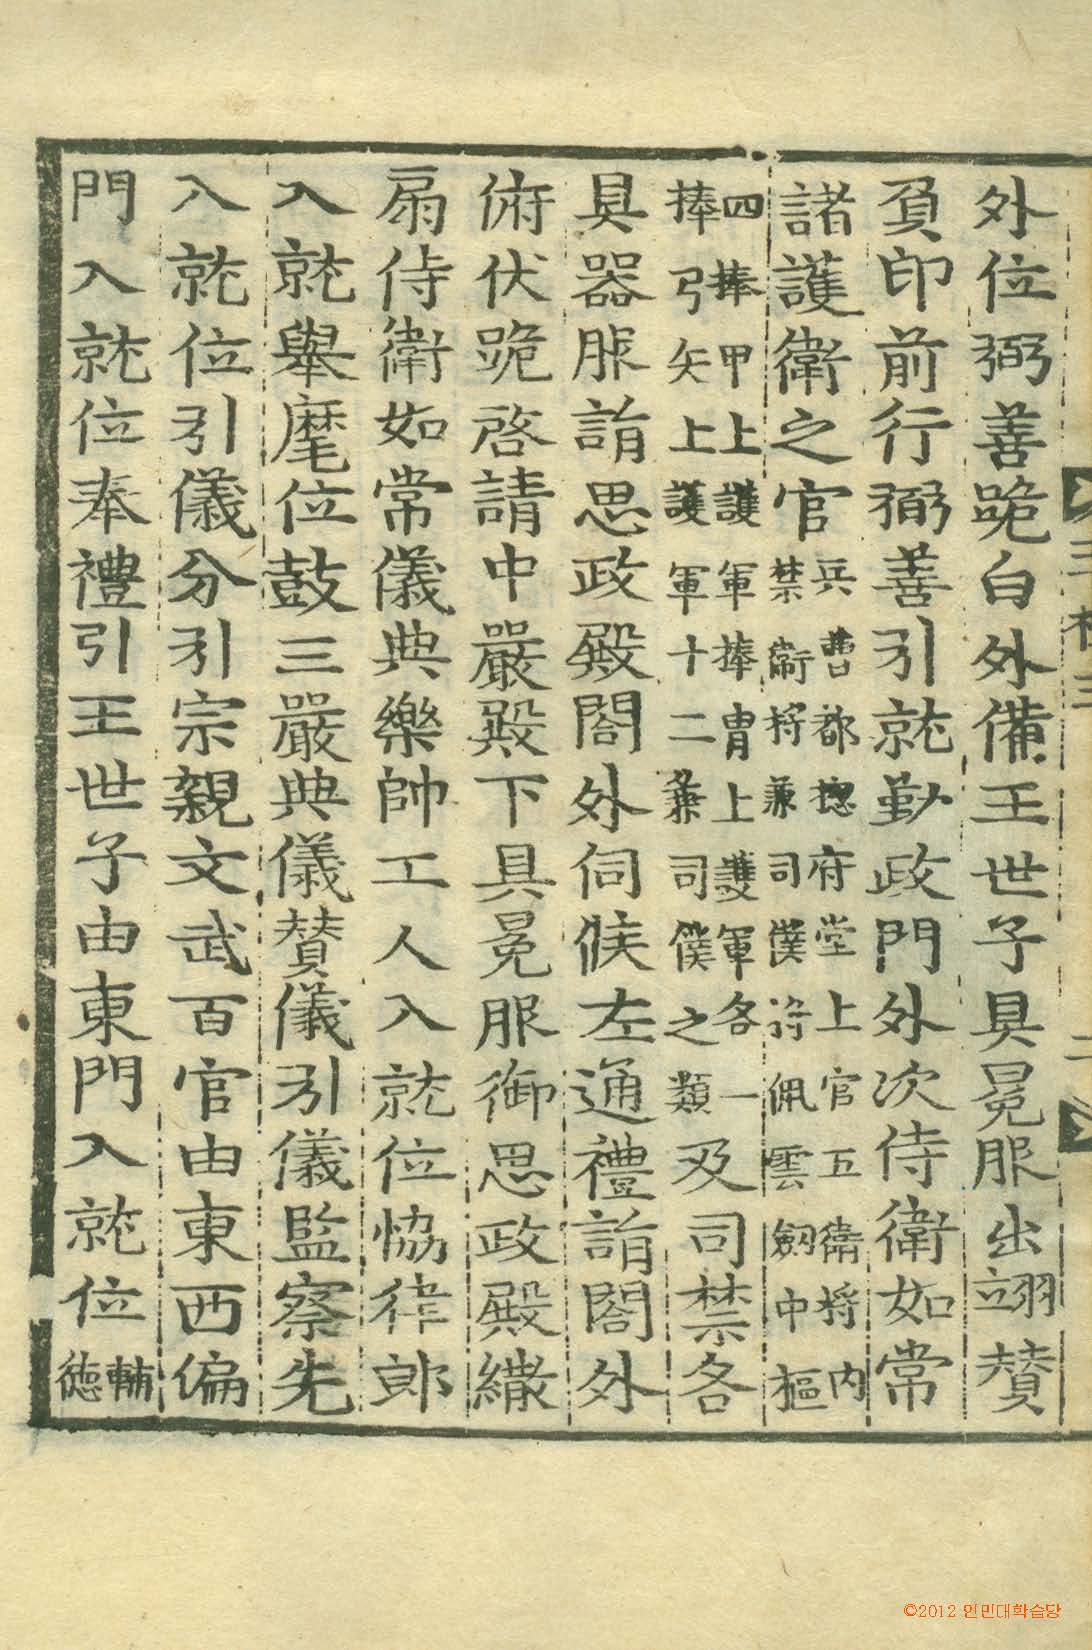 外位弼善跪白外備王世子具冕服出翊賛
負印前行弼善引就勤政門外次侍衛如常
諸護衛之官兵曹都摠府堂上官五衛將内禁衛將兼司僕將佩雲劒中樞
四捧甲上護軍捧冑上護軍各一捧弓矢上護軍十二兼司僕之類及司禁各
具器服詣思政殿閤外伺候左通禮詣閤外
俯伏跪啓請中嚴殿下具冕服御思政殿繖
扇侍衛如常儀典樂帥工人入就位恊律郎
入就舉麾位鼓三嚴典儀賛儀引儀監察先
入就位引儀分引宗親文武百官由東西偏
門入就位奉禮引王世子由東門入就位輔德
©2012 인민대학습당